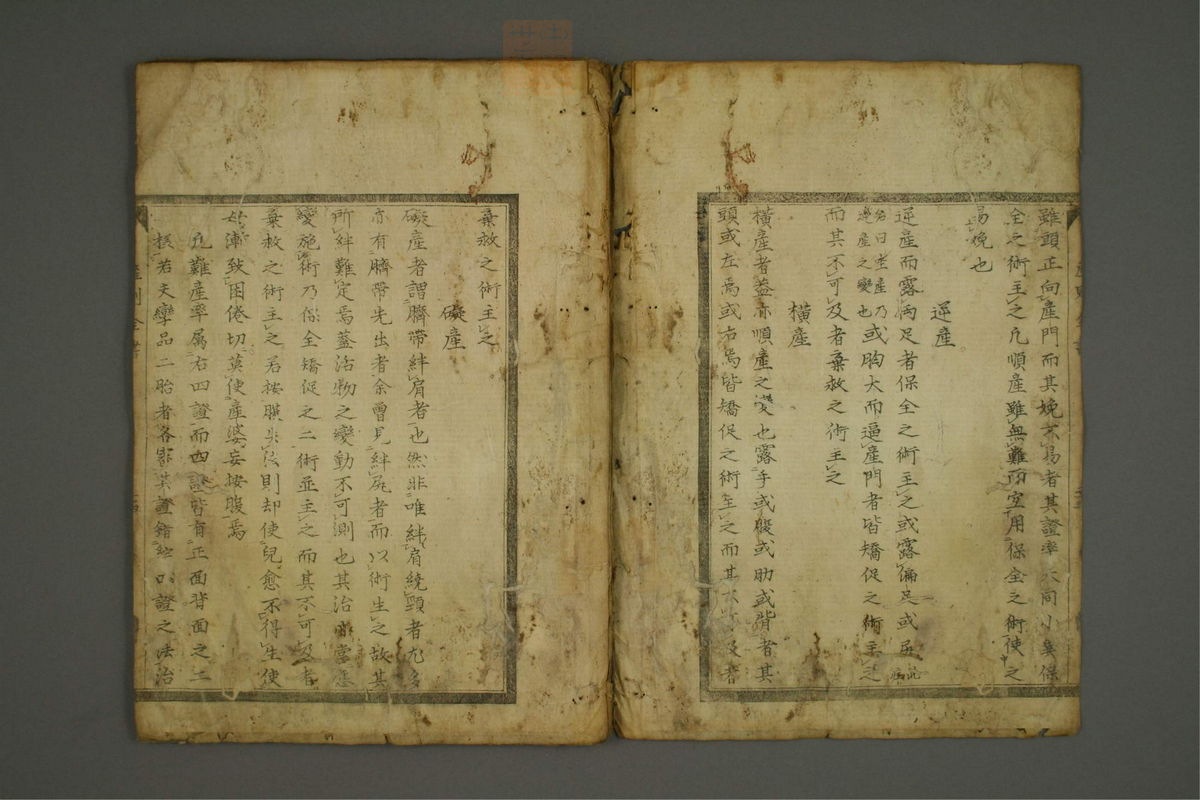 雖頭正向産門而其娩不易者其證率大同小異保
全之術主之凡順産雖無難而宜用保全之術使之
易娩也
逆産
逆産而露両足者保全之術主之或露偏足或尻
名曰坐産乃
逆産之變也
或胸大而逼産門者皆矯促之術主之
而其不可及者棄救之術主之
横産
横産者蓋亦順産之変也露手或臂或肋或背者其
頭或左焉或右焉皆矯促之術主之而其不可及者
棄救之術主之
礙産
礙産者謂臍帯絆肩者也然非唯絆肩繞頸者尤多
亦有臍帯先出者余曽見絆尻者而以術生之故其
所絆難定焉蓋活物之變動不可測也其治亦當應
變施術乃保全矯促之二術並主之而其不可及者
棄救之術主之若按腹失法則却使兒愈不得生使
母漸致困倦切莫使産婆妄按腹焉
凡難産率属右四證而四證皆有正面背面之二
様若夫孿品二胎者各審其證錯綜四證之法治